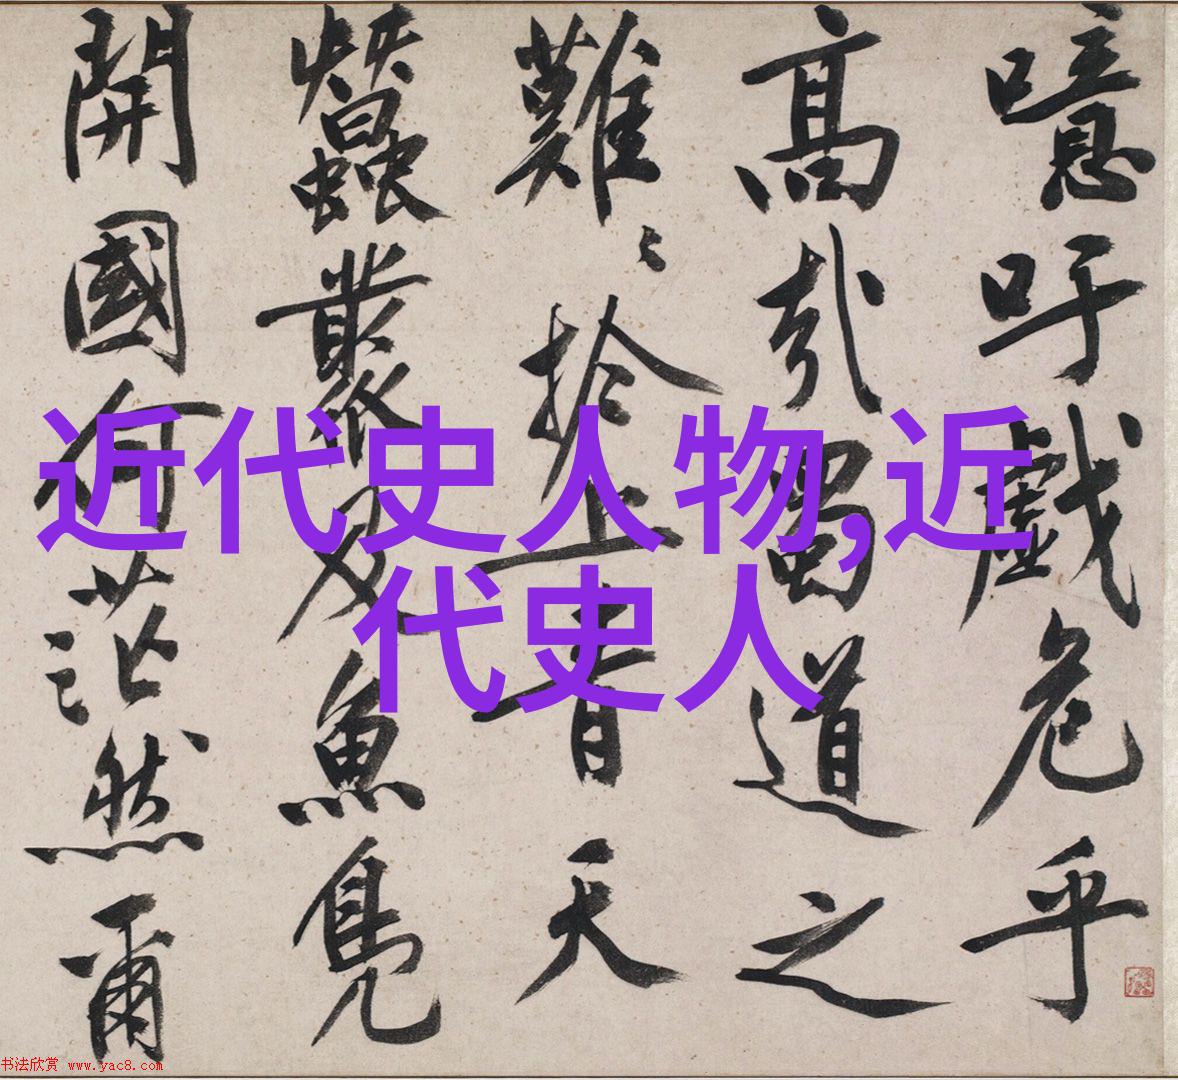 噫吁戲危乎
高哉蜀道之
難〻於上青天
蠶叢及魚鳧
開國何茫然爾
近代史人物,近
代史人
书法欣赏 www.yac8.com